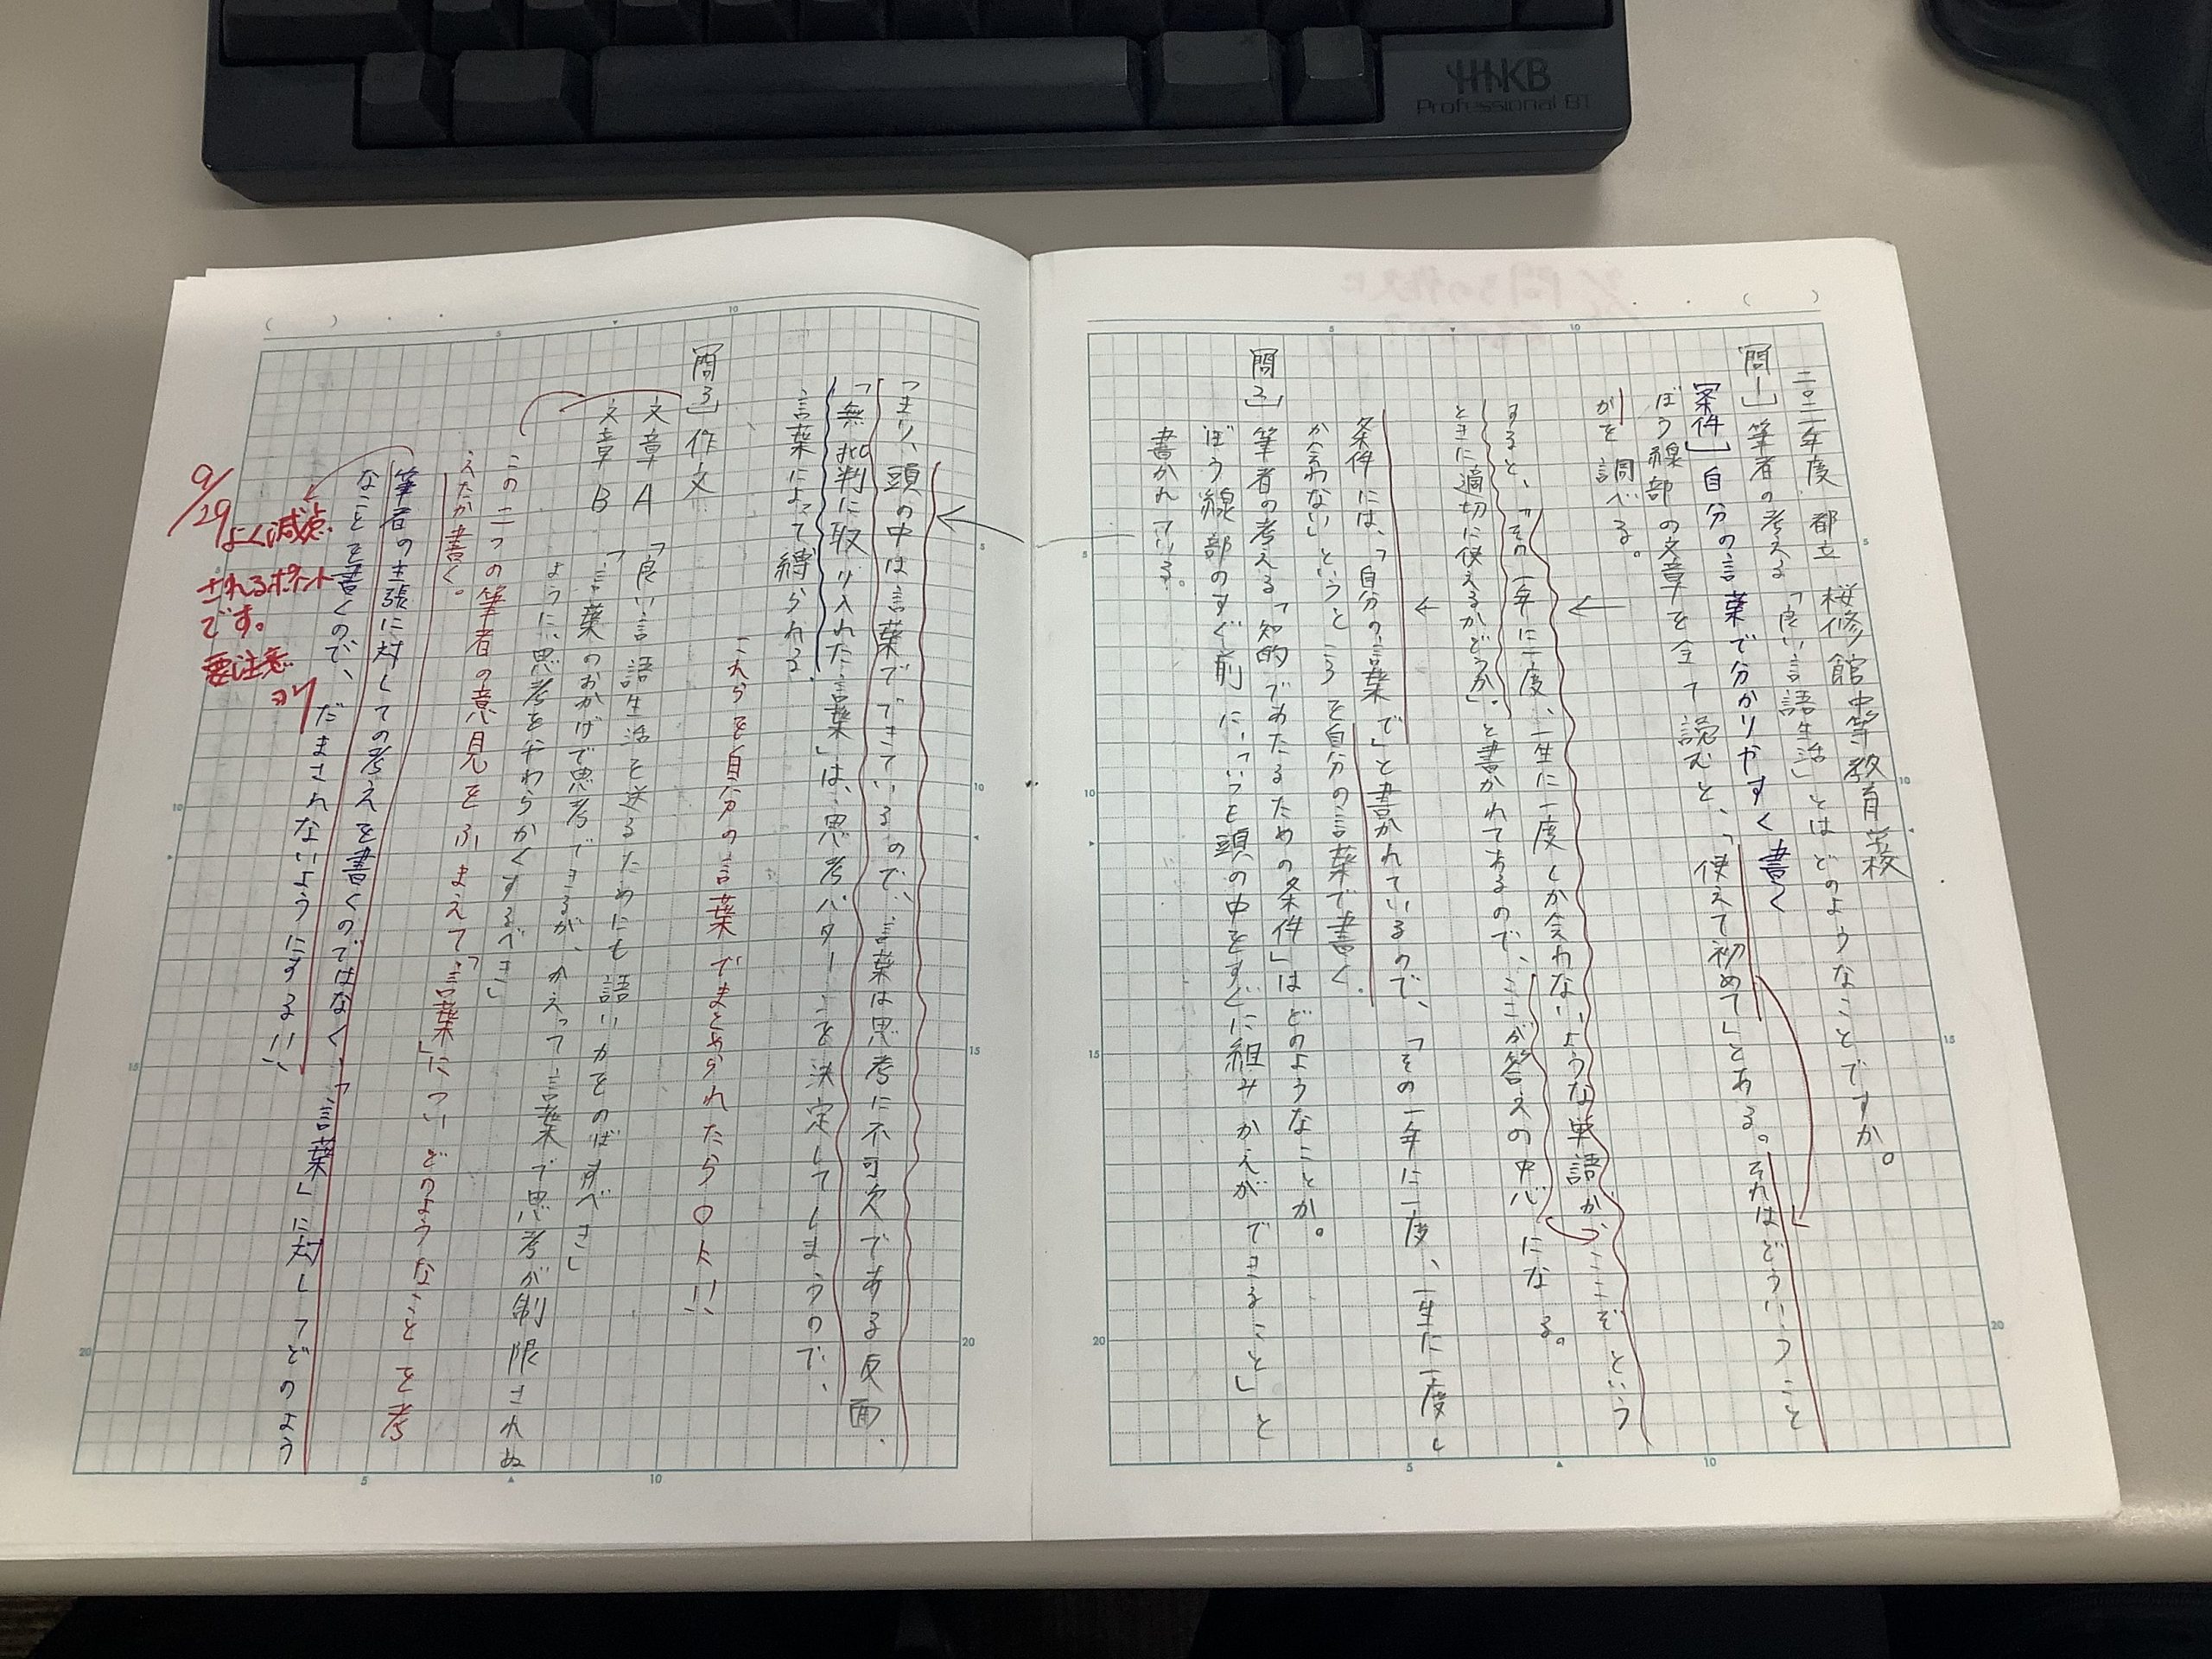 HHKB
Professional BT
二〇二二年度 都立 桜修館中等教育学校
[問1] 筆者の考える「良い言語生活」とはどのようなことですか。
[条件] 自分の言葉で分かりやすく書く
ぼう線部の文章を全て読むと、「使えて初めて」とある。それはどういうこと
かを調べる。
すると、「その一年に一度、一生に一度しか会わないような単語が、ここぞという
ときに適切に使えるかどうか」と書かれてあるので、ここが答えの中心になる。
条件には、「自分の言葉で」と書かれているので、「その一年に一度、一生に一度し
か会わない」というところを自分の言葉で書く。
[問2] 筆者の考える「知的であたるための条件」はどのようなことか。
ぼう線部のすぐ前に、「いつも頭の中をすぐに組みかえができること」と
書かれている。
つまり、頭の中は言葉でできているので、言葉は思考に不可欠である反面、
「無批判に取り入れた言葉」は、思考パターンを決定してしまうので、
言葉によって縛られる。
これらを自分の言葉でまとめられたらOK!!
[問3] 作文
文章A 「良い言語生活を送るためにも語いかをのばすべき」
文章B 「言葉のおかげで思考できるが、かえって言葉で思考が制限されぬ
ように、思考をやわらかくするべき」
この二つの筆者の意見をふまえて、「言葉」についどのようなことを考
えたか書く。
筆者の主張に対しての考えを書くのではなく、「言葉」に対してどのよう
なことを書くので、だまされないようにする!!
9/29 よく減点
されるポイント
です。
要注意